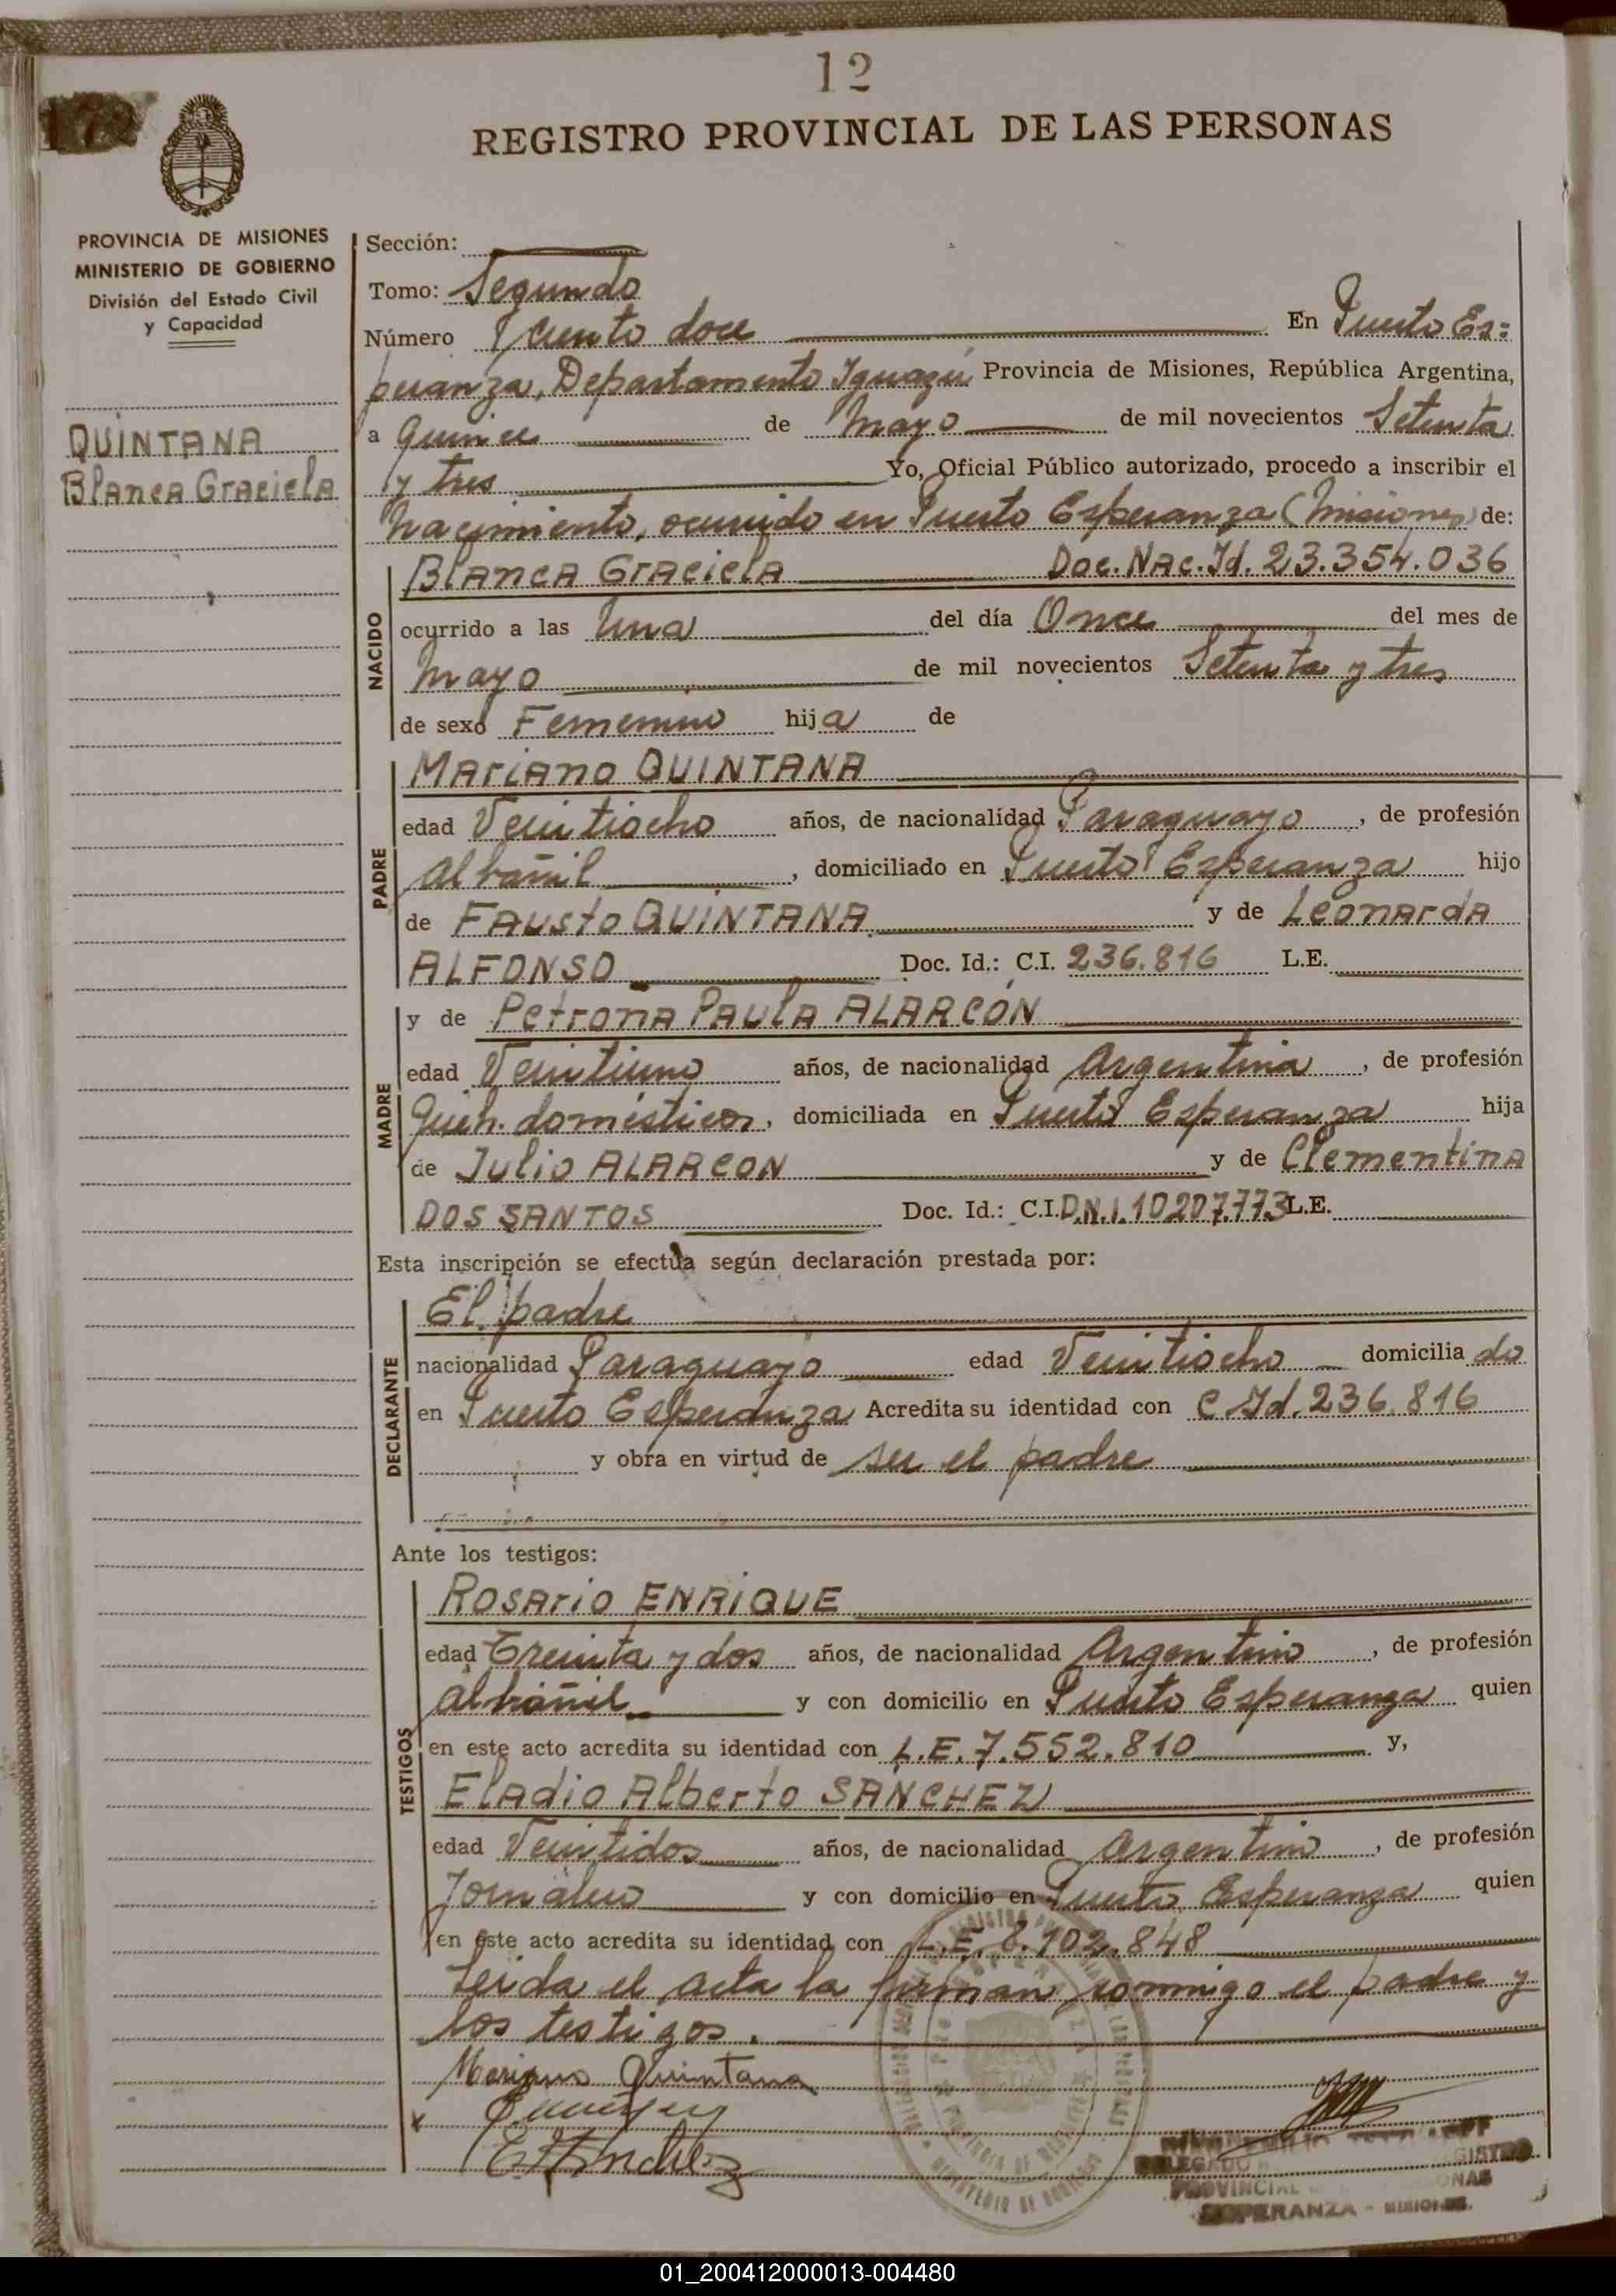 12
REGISTRO PROVINCIAL DE LAS PERSONAS
PROVINCIA DE MISIONES
MINISTERIO DE GOBIERNO
División del Estado Civil
y Capacidad
QUINTANA
Blanca Graciela
Sección:
Tomo: Segundo
Número Ciento doce En Puerto Es=
peranza, Departamento Iguazú Provincia de Misiones, República Argentina,
a quince de Mayo de mil novecientos Setenta
y tres Yo, Oficial Público autorizado, procedo a inscribir el
nacimiento, ocurrido en Puerto Esperanza (Misiones) de:
NACIDO
Blanca Graciela Doc. Nac. Id. 23.354.036
ocurrido a las Una del día Once del mes de
Mayo de mil novecientos Setenta y tres
de sexo Femenino hija de
PADRE
Mariano QUINTANA
edad Veintiocho años, de nacionalidad Paraguayo, de profesión
albañil, domiciliado en Puerto Esperanza hijo
de Fausto QUINTANA y de Leonarda
ALFONSO Doc. Id.: C.I. 236.816 L.E.
MADRE
y de Petrona Paula ALARCÓN
edad Veintiuno años, de nacionalidad Argentina, de profesión
Queh. domésticos, domiciliada en Puerto Esperanza hija
de Julio ALARCON y de Clementina
DOS SANTOS Doc. Id.: C.I. D.N.I. 10207.773 L.E.
Esta inscripción se efectúa según declaración prestada por:
DECLARANTE
El padre
nacionalidad Paraguayo edad Veintiocho domiciliado
en Puerto Esperanza Acredita su identidad con C. Id. 236.816
y obra en virtud de ser el padre
Ante los testigos:
TESTIGOS
Rosario ENRIQUE
edad Treinta y dos años, de nacionalidad Argentino, de profesión
albañil y con domicilio en Puerto Esperanza quien
en este acto acredita su identidad con L.E. 7.552.810 y,
Eladio Alberto SANCHEZ
edad Veintidos años, de nacionalidad Argentino, de profesión
Jornalero y con domicilio en Puerto Esperanza quien
en este acto acredita su identidad con L.E. 8.102.848
Leida el acta la firman conmigo el padre y
los testigos.
Mariano Quintana
E Sanchez
DELEGADO REGISTRO
PROVINCIAL PERSONAS
ESPERANZA - MISIONES.
01_200412000013-004480